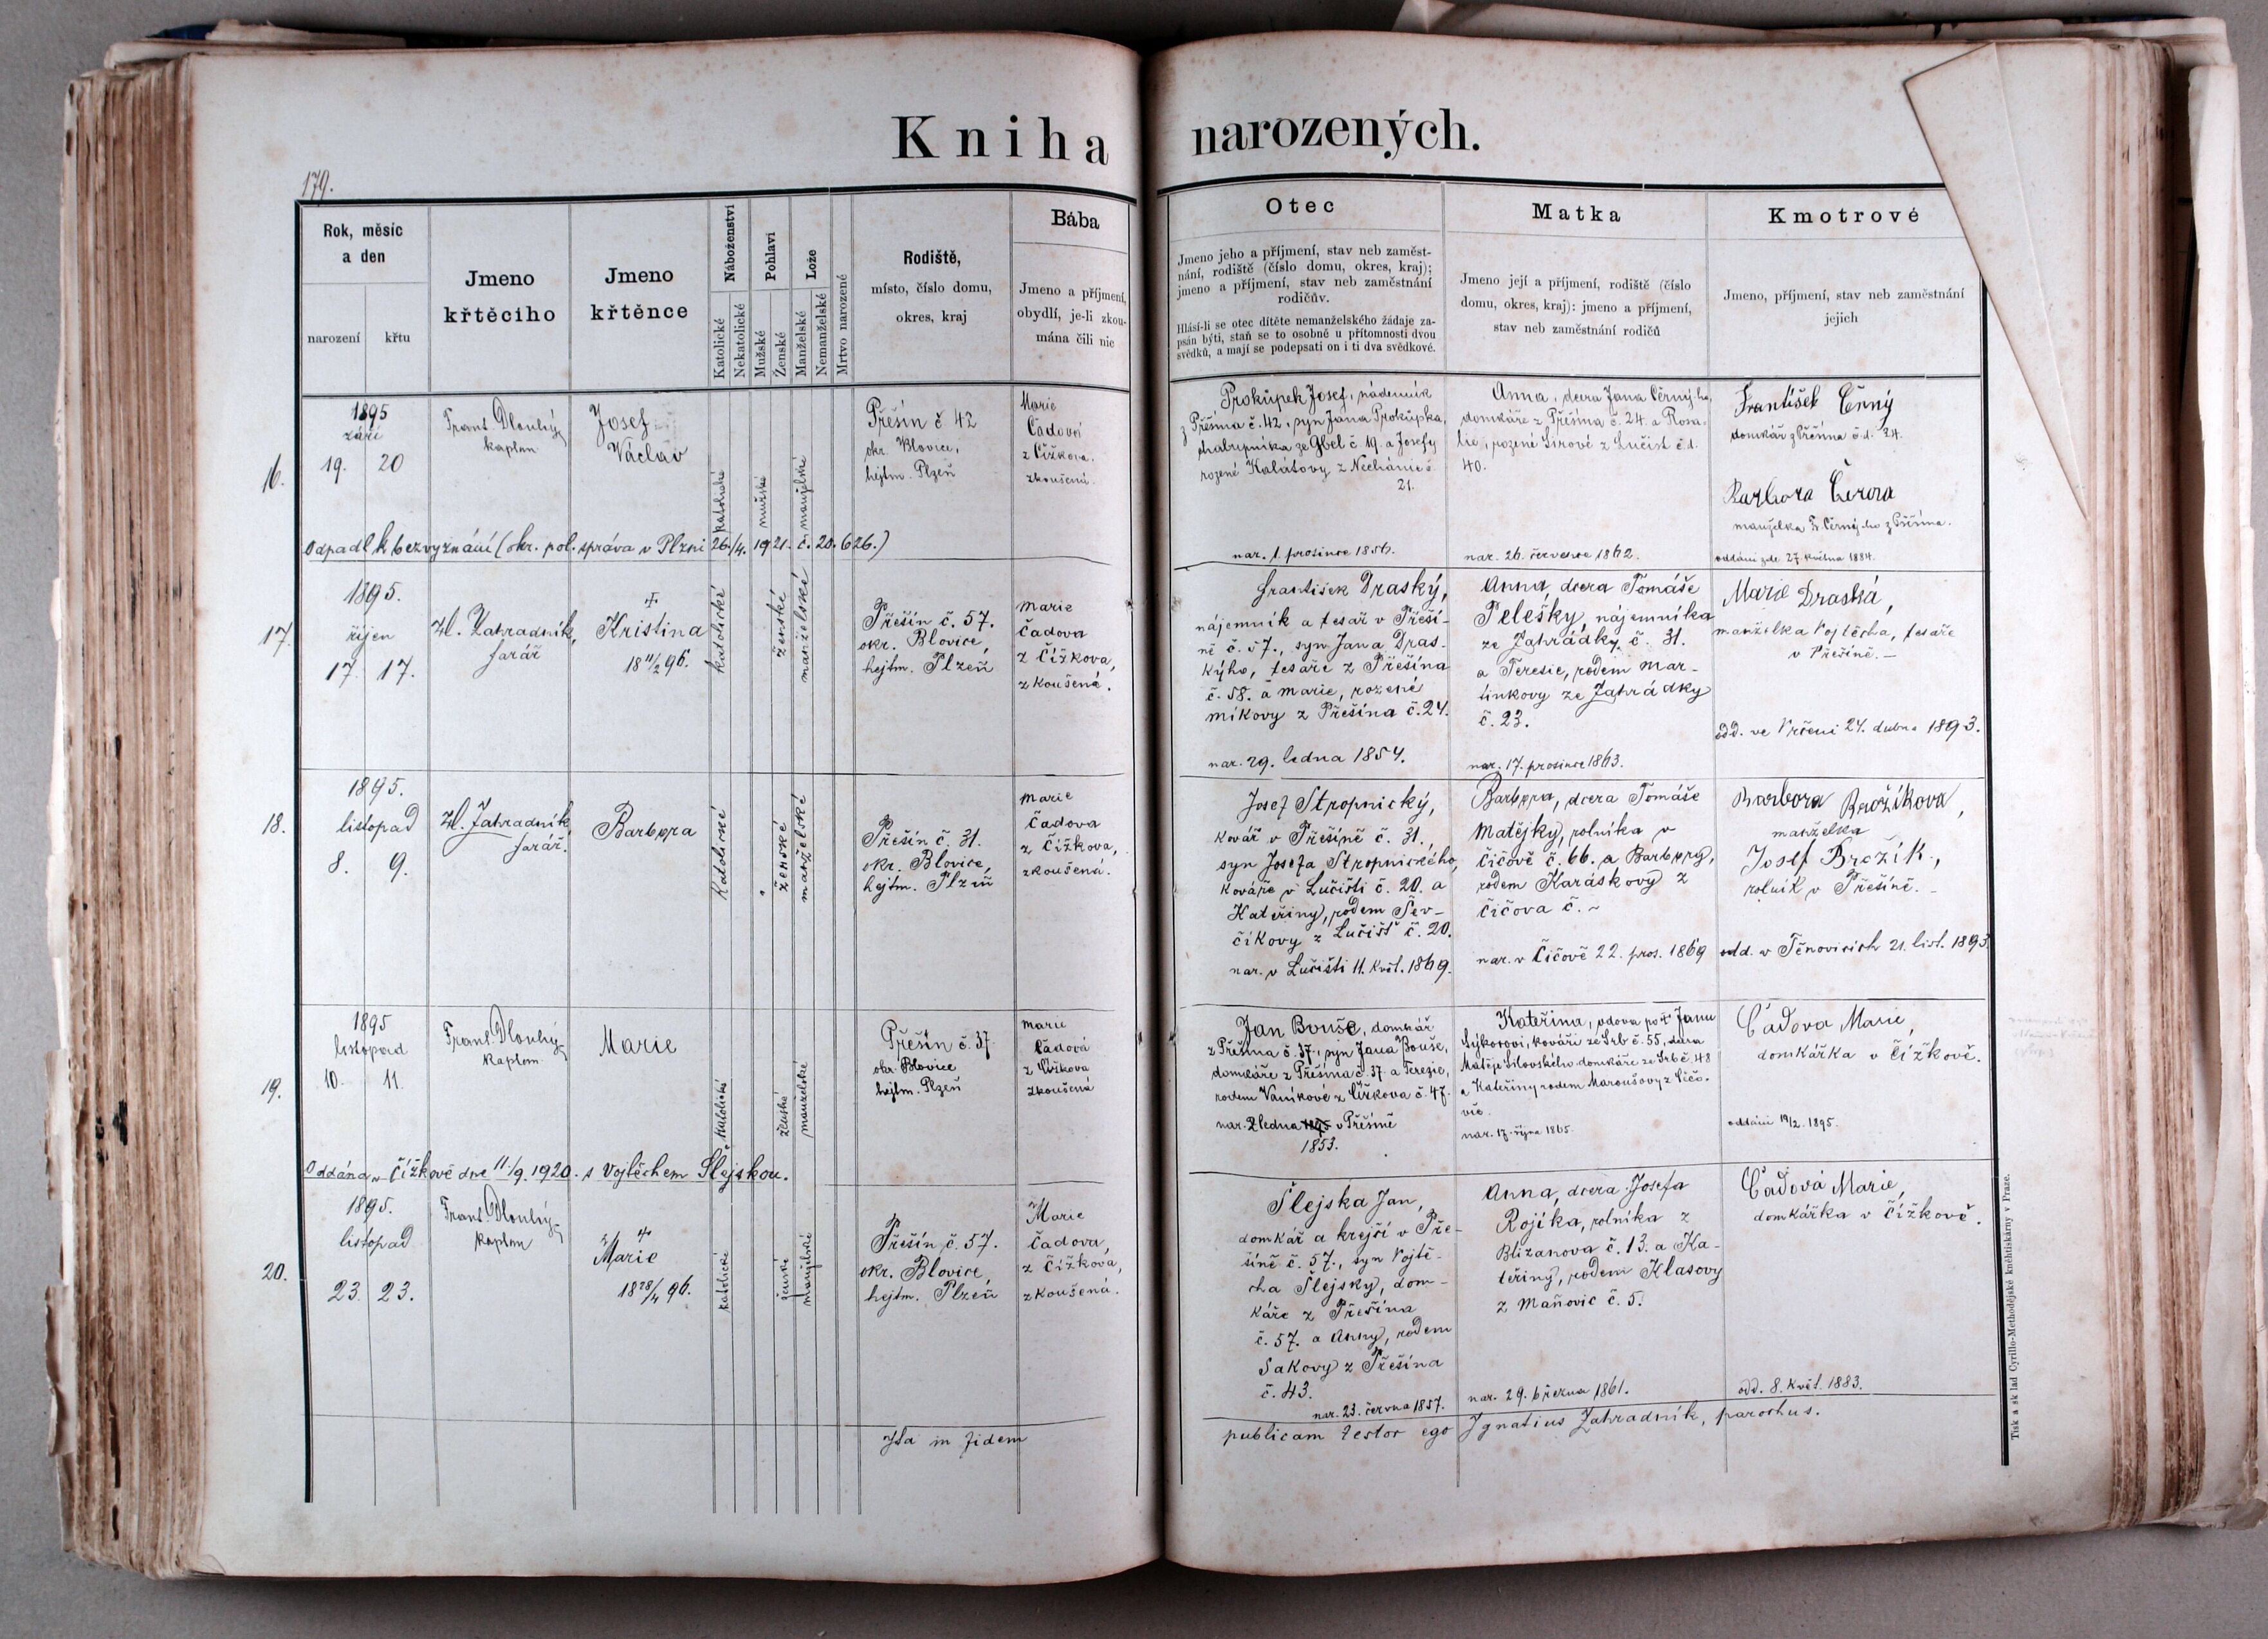 Kniha narozených.
179.
Rok, měsíc
a den
narození
křtu
Jmeno
křtěcího
Jmeno
křtěnce
Náboženství
Katolické
Nekatolické
Pohlaví
Mužské
Ženské
Lože
Manželské
Nemanželské
Mrtvo narozené
Rodiště,
místo, číslo domu,
okres, kraj
Bába
Jmeno a příjmení,
obydlí, je-li zkou-
mána čili nic
Otec
Jmeno jeho a příjmení, stav neb zaměst-
nání, rodiště (číslo domu, okres, kraj);
jmeno a příjmení, stav neb zaměstnání
rodičův.
Hlásí-li se otec dítěte nemanželského žádaje za-
psán býti, staň se to osobně u přítomnosti dvou
svědků, a mají se podepsati on i ti dva svědkové.
Matka
Jmeno její a příjmení, rodiště (číslo
domu, okres, kraj): jmeno a příjmení,
stav neb zaměstnání rodičů
Kmotrové
Jmeno, příjmení, stav neb zaměstnání
jejich
16.
1895
září
19. 20
Frant. Dlouhý
kaplan
Josef
Václav
katolické
mužské
manželské
Přešín č 42
okr. Blovice,
hejtm. Plzeň
Marie
Čadová
z Čížkova,
zkoušená.
Prokůpek Josef, nádenník
z Přešína č. 42, syn Jana Prokůpka,
chalupníka ze Gbel č. 19. a Josefy
rozené Kalátovy z Nechánic č.
21.
nar. 1. prosince 1856.
Anna, dcera Jana Černý-ho,
domkáře z Přešína č. 24. a Rosa-
lie, rozené Sirové z Lučišt č.d.
40.
nar. 26. července 1862.
František Černý
domkář z Přešína č.d. 24.
Barbora Černá
manželka Fr. Černý-ho z Přešína.
oddáni zde 27. května 1884.
Odpadl k bezvyznání (okr. pol. správa v Plzni 26./4. 1921. č. 20.626.)
17.
1895.
říjen
17. 17.
Zahradník,
farář
+
Kristina
18 11/2 96.
katolické
ženské
manželské
Přešín č. 57.
okr. Blovice,
hejtm. Plzeň
Marie
Čadova
z Čížkova,
zkoušená.
František Draský,
nájemník a tesař v Přeší-
ně č. 57., syn Jana Dras-
kýho, tesaře z Přešína
č. 58. a Marie, rozené
Míkovy z Přešína č. 24.
nar. 29. ledna 1854.
Anna, dcera Tomáše
Pelešky, nájemníka
ze Zahrádky č. 31.
a Teresie, rodem Mar-
tinkovy ze Zahrádky
č. 23.
nar. 17. prosince 1863.
Marie Draská,
manželka Vojtěcha, tesaře
v Přešíně. —
odd. ve Vrčeni 24. dubna 1893.
18.
1895.
listopad
8. 9.
Zahradník
farář.
Barbora
katolické
ženské
manželské
Přešín č. 31.
okr. Blovice,
hejtm. Plzeň
Marie
Čadova
z Čížkova,
zkoušená.
Josef Stropnický,
kovář v Přešíně č. 31.,
syn Josefa Stropnického,
kováře v Lučišti č. 20. a
Kateřiny, rodem Šev-
číkovy z Lučišť č. 20.
nar. v Lučišti 11. květ. 1869.
Barbora, dcera Tomáše
Matějky, rolníka v
Čičově č. 66. a Barbory,
rodem Karáskovy z
Čičova č. ~
nar. v Čičově 22. pros. 1869
Barbora Brožíkova,
manželka
Josef Brožík,
rolník v Přešíně. —
odd. v Těnovicích 21. list. 1893
19.
1895
listopad
10. 11.
Frant. Dlouhý
kaplan
Marie
katolické
ženské
manželské
Přešín č. 37
okr. Blovice
hejtm. Plzeň
Marie
Čadová
z Čížkova
zkoušená
Jan Bouše, domkář
z Přešína č. 37., syn Jana Bouše,
domkáře z Přešína č. 37. a Terezie,
rodem Vaníkové z Čížkova č. 47.
nar. 2 ledna v Přešíně
1853.
Kateřina, vdova po † Janu
Sýkorovi, kováři ze Srb č. 55, dcera
Matěje Silovského domkáře ze Srb č. 48
a Kateřiny rodem Maroušovy z Čičo-
vic.
nar. 17. října 1865.
Čadova Marie,
domkářka v Čížkově.
oddáni 19/2. 1895.
Oddána v Čížkově dne 11./9. 1920. s Vojtěchem Šlejskou.
20.
1895.
listopad
23. 23.
Frant. Dlouhý
kaplan
+
Marie
18 28/4 96.
katolické
ženské
manželské
Přešín č. 57.
okr. Blovice,
hejtm. Plzeň
Marie
Čadova,
z Čížkova,
zkoušená.
Šlejska Jan,
domkář a krejčí v Pře-
šíně č. 57., syn Vojtě-
cha Šlejsky, dom-
káře z Přešína
č. 57. a Anny, rodem
Sakovy z Přešína
č. 43.
nar. 23. června 1857.
Anna, dcera Josefa
Rojíka, rolníka z
Blizanova č. 13. a Ka-
teřiny, rodem Klasovy
z Maňovic č. 5.
nar. 29. března 1861.
Čadová Marie,
domkářka v Čížkově.
odd. 8. květ. 1883.
Ita in fidem publicam testor ego Ignatius Zahradník, parochus.
Tisk a sklad Cyrillo-Methodějské knihtiskárny v Praze.